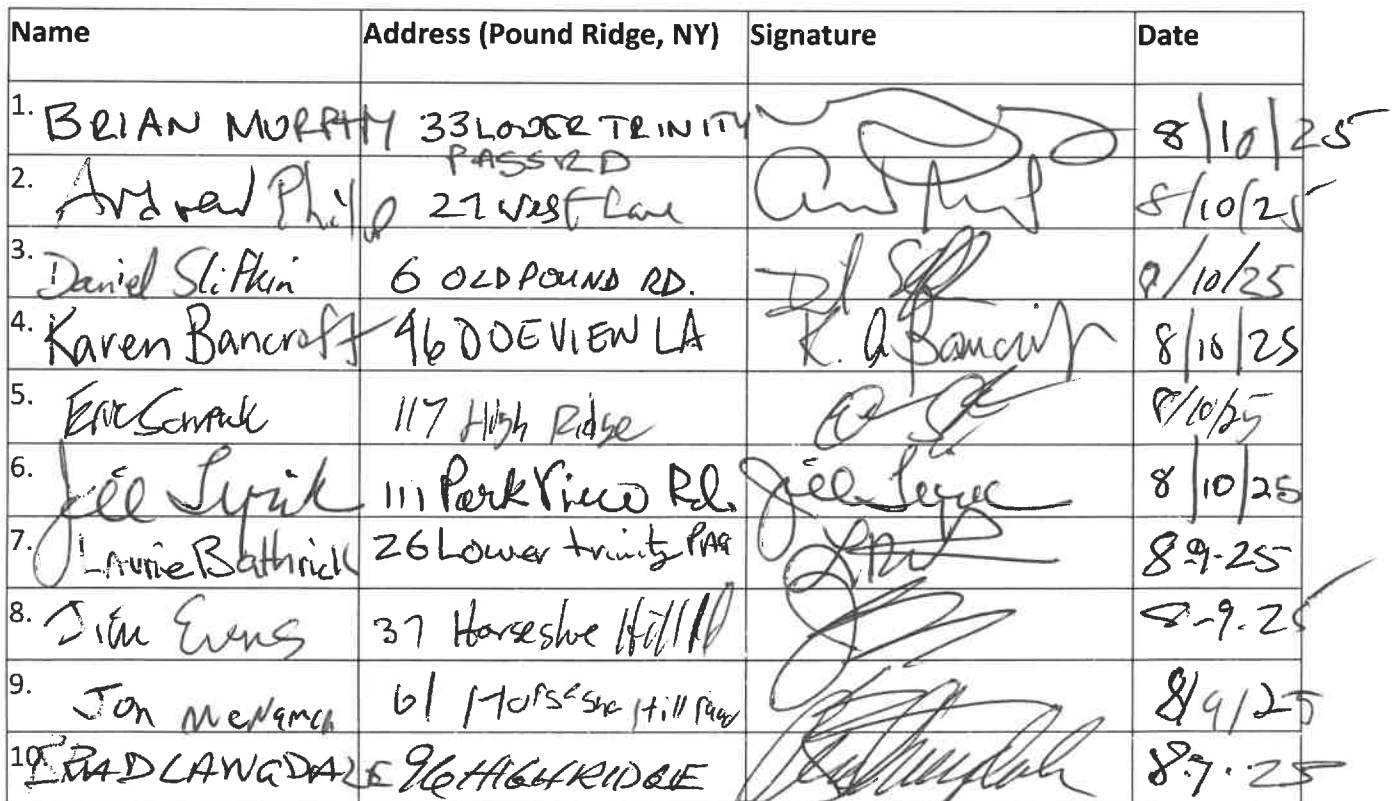 Name Address (Pound Ridge, NY) Signature Date
1. BRIAN MURPHY 33 LOWER TRINITY 8/10/25
PASS RD
2. Andrew Philip 27 West Lane 8/10/25
3. Daniel Slifkin 6 OLD POUND RD. 8/10/25
4. Karen Bancroft 96 DOEVIEW LA K. A Bancroft 8/10/25
5. Eric 117 High Ridge 8/10/25
6. Jill 111 Park View Rd. Jill 8/10/25
7. Laurie Bathrick 26 Lower trinity Pass 8-9-25
8. Jim Evans 37 Horseshoe Hill Rd 8-9-25
9. Jon McNamara 61 Horseshoe Hill Road 8/9/25
10. BRAD LANGDALE 96 HIGH RIDGE 25